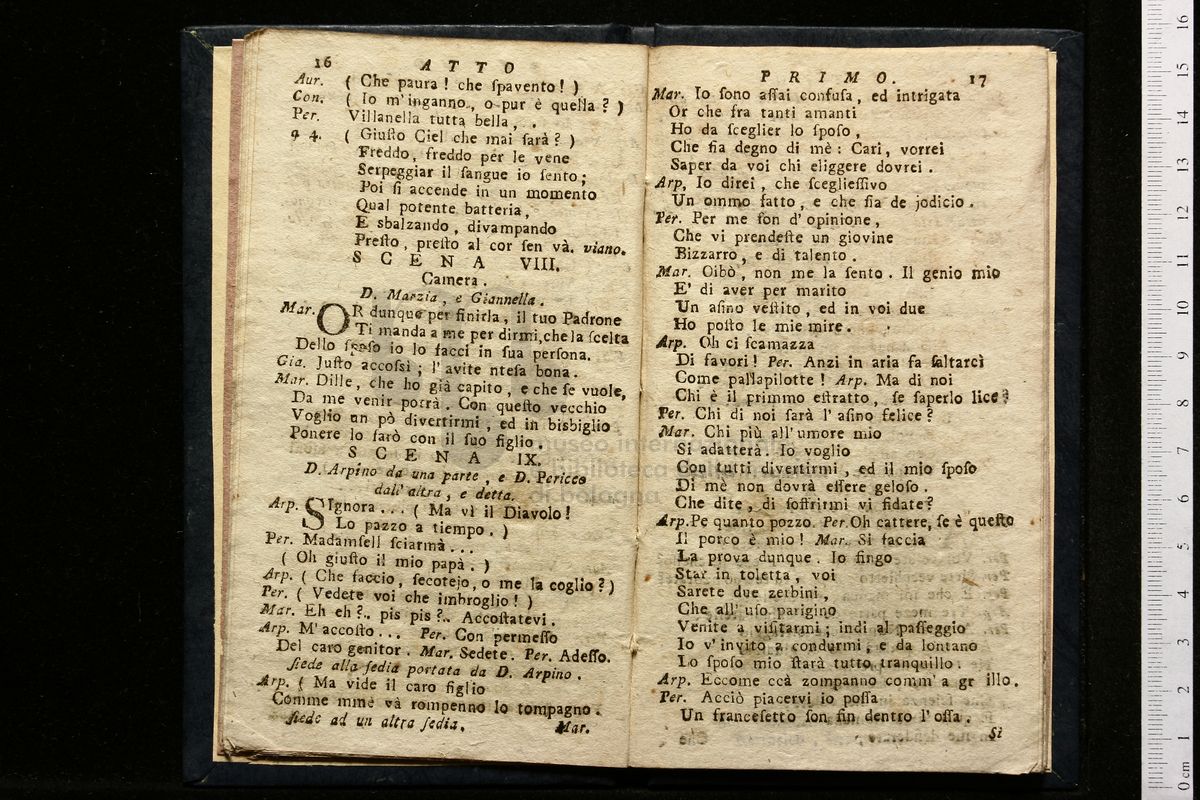 16 ATTO
Aur. ( Che paura ! che ſpavento ! )
Con. ( Io m'inganno, o pur è quella ? )
Per. Villanella tutta bella,
a 4. ( Giuſto Ciel che mai ſarà ? )
Freddo, freddo per le vene
Serpeggiar il ſangue io ſento;
Poi ſi accende in un momento
Qual potente batteria,
E sbalzando, divampando
Preſto, preſto al cor ſen và. viano.
SCENA VIII.
Camera.
D. Marzia, e Giannella.
Mar. OR dunque per finirla, il tuo Padrone
Ti manda a me per dirmi, che la ſcelta
Dello ſpoſo io lo facci in ſua perſona.
Gia. Juſto accoſsì; l'avite nteſa bona.
Mar. Dille, che ho già capito, e che ſe vuole,
Da me venir potrà. Con queſto vecchio
Voglio un pò divertirmi, ed in bisbiglio
Ponere lo farò con il ſuo figlio.
SCENA IX.
D. Arpino da una parte, e D. Pericco
dall'altra, e detta.
Arp. SIgnora... ( Ma vì il Diavolo !
Lo pazzo a tiempo. )
Per. Madamſell ſciarmà...
( Oh giuſto il mio papà. )
Arp. ( Che faccio, ſecotejo, o me la coglio ? )
Per. ( Vedete voi che imbroglio ! )
Mar. Eh eh ?.. pis pis ?.. Accoſtatevi.
Arp. M'accoſto... Per. Con permeſſo
Del caro genitor. Mar. Sedete. Per. Adeſſo.
ſiede alla ſedia portata da D. Arpino.
Arp. ( Ma vide il caro figlio
Comme mme và rompenno lo tompagno.
ſiede ad un altra ſedia. Mar.
PRIMO. 17
Mar. Io ſono aſſai confuſa, ed intrigata
Or che fra tanti amanti
Ho da ſceglier lo ſpoſo,
Che ſia degno di mè : Cari, vorrei
Saper da voi chi eliggere dovrei.
Arp, Io direi, che ſceglieſſivo
Un ommo fatto, e che ſia de jodicio.
Per. Per me ſon d'opinione,
Che vi prendeſte un giovine
Bizzarro, e di talento.
Mar. Oibò, non me la ſento. Il genio mio
E' di aver per marito
Un aſino veſtito, ed in voi due
Ho poſto le mie mire.
Arp. Oh ci ſcamazza
Di favori ! Per. Anzi in aria fa ſaltarci
Come pallapilotte ! Arp. Ma di noi
Chi è il primmo eſtratto, ſe ſaperlo lice ?
Per. Chi di noi ſarà l'aſino felice ?
Mar. Chi più all'umore mio
Si adatterà. Io voglio
Con tutti divertirmi, ed il mio ſpoſo
Di mè non dovrà eſſere geloſo.
Che dite, di ſoffrirmi vi fidate ?
Arp. Pe quanto pozzo. Per. Oh cattere, ſe è queſto
Il porco è mio ! Mar. Si faccia
La prova dunque. Io fingo
Star in toletta, voi
Sarete due zerbini,
Che all'uſo parigino
Venite a viſitarmi; indi al paſſeggio
Io v'invito a condurmi, e da lontano
Lo ſpoſo mio ſtarà tutto tranquillo.
Arp. Eccome ccà zompanno comm'a gr illo.
Per. Acciò piacervi io poſſa
Un franceſetto ſon fin dentro l'oſſa.
Si
museo internazionale
biblioteca della musica
di bologna
0 cm 1 2 3 4 5 6 7 8 9 10 11 12 13 14 15 16